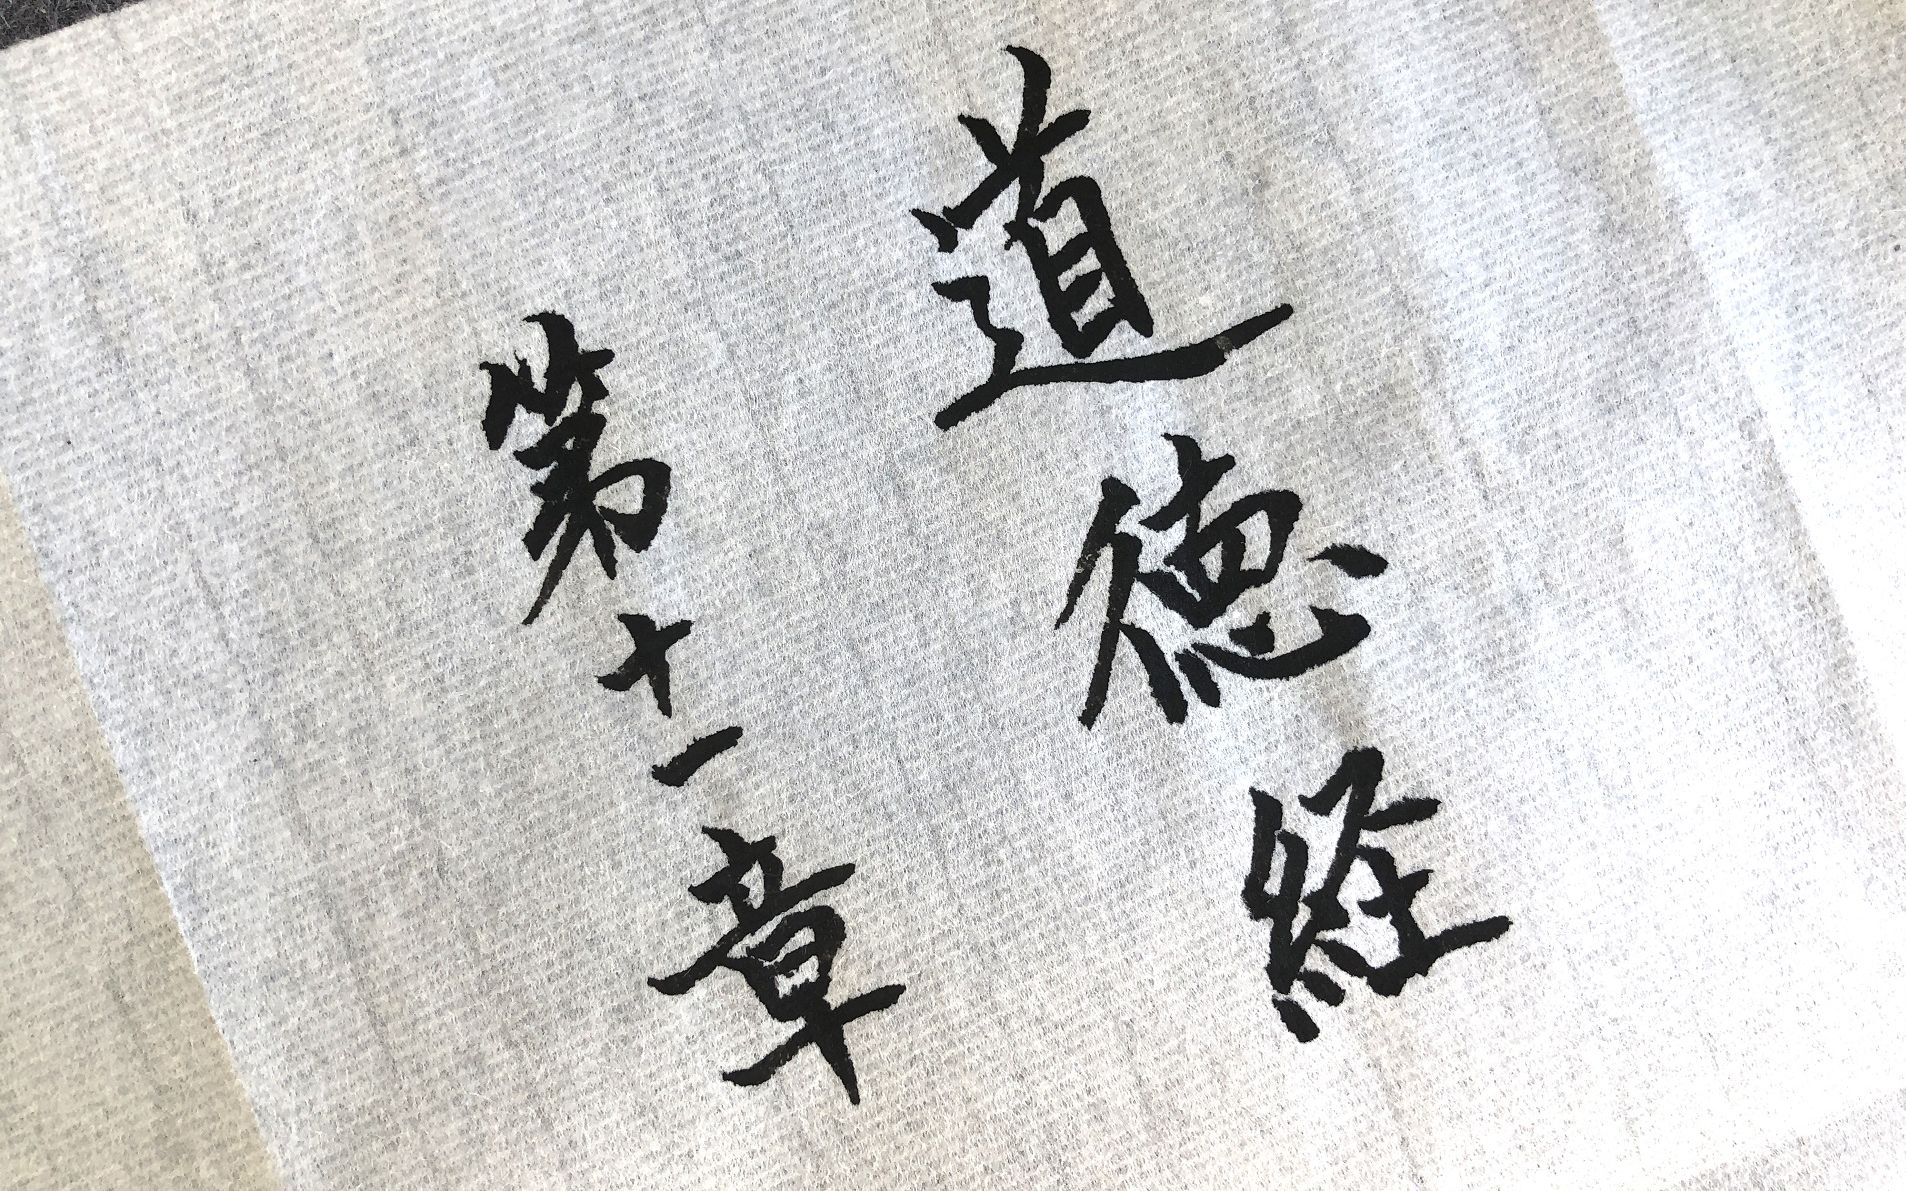 道德经
第十一章